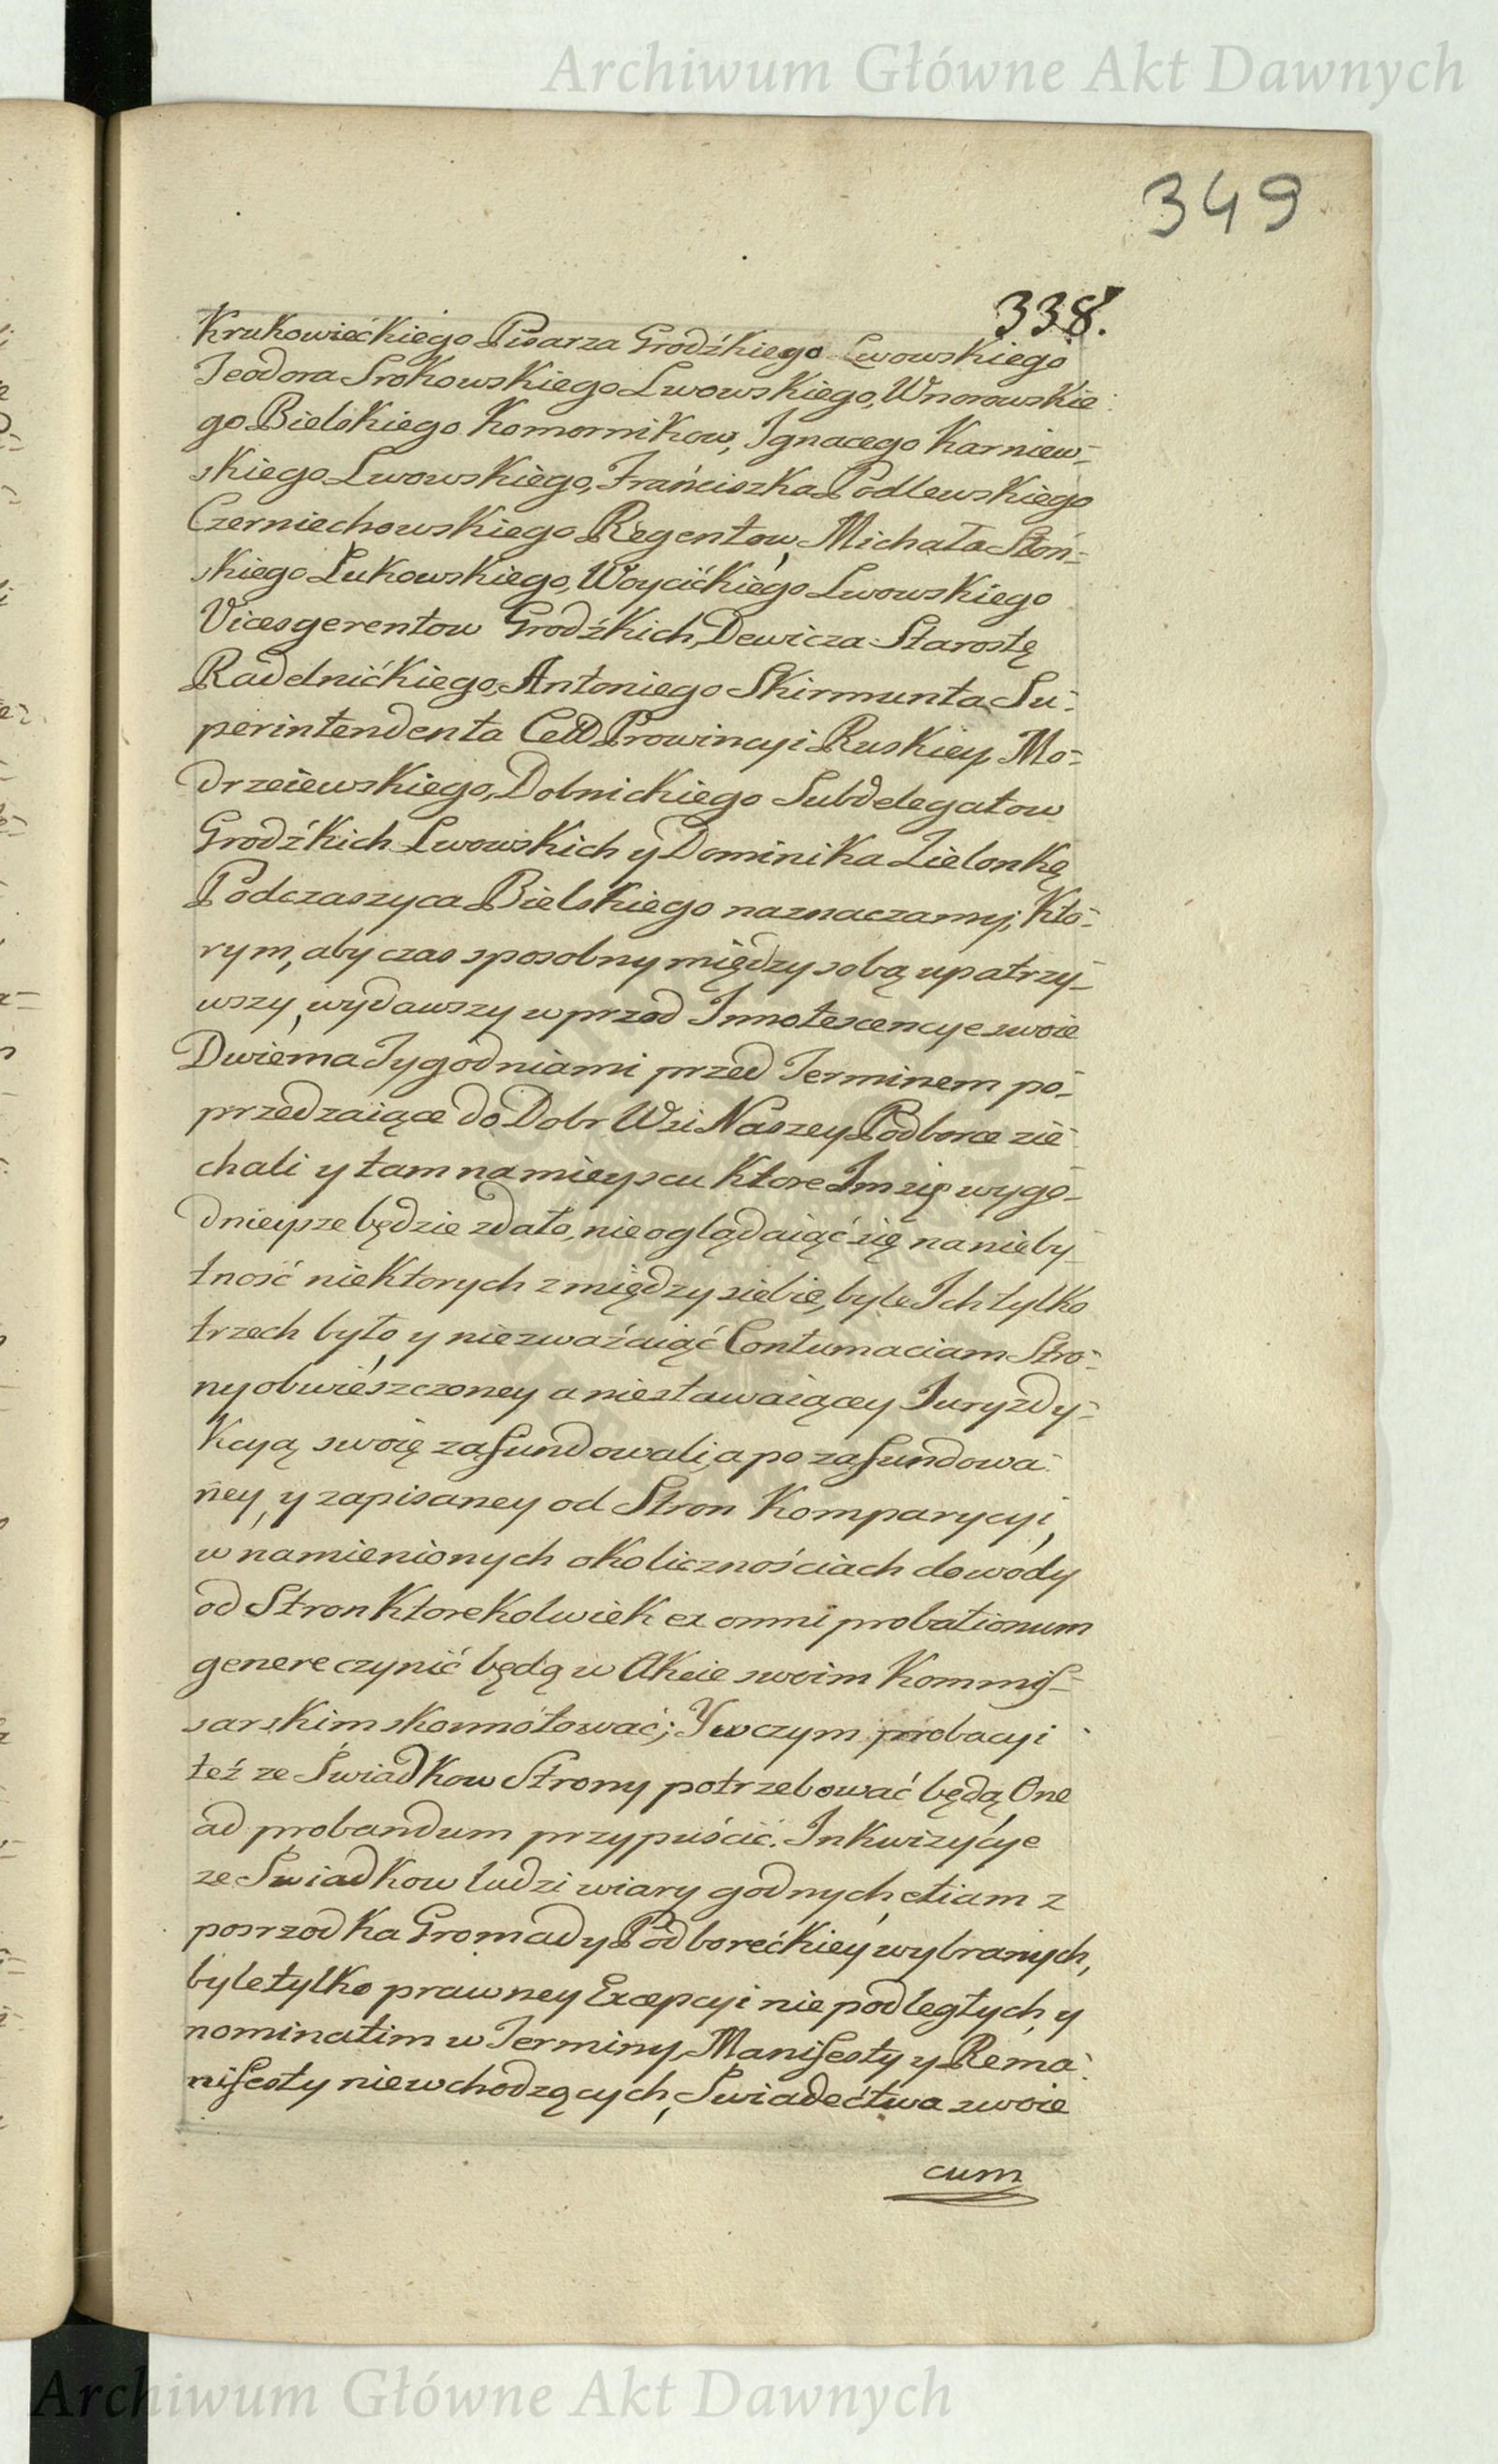 Archiwum Główne Akt Dawnych
349
338.
Krukowiećkiego Pisarza Grodźkiego Lwowskiego
Teodora Srokowskiego Lwowskiego, Wnorowskie
go Bielskiego Komornikow, Ignacego Karniew=
skiego Lwowskiego, Franciszka Podlewskiego
Czerniechowskiego Regentow, Michała Słoń=
skiego Łukowskiego, Woycićkiego Lwowskiego
Vicesgerentow Grodźkich, Dewicza Starostę
Radelnićkiego, Antoniego Skirmunta Su=
perintendenta Ceł Prowincyi Ruskiey, Mo=
drzeiewskiego, Dolnickiego Subdelegatow
Grodźkich Lwowskich y Dominika Zielonkę
Podczaszyca Bielskiego naznaczamy; Kto=
rym, aby czas sposobny między sobą upatrzy=
wszy, wydawszy wprzod Innotescencye swoie
Dwiema Tygodniami przed Terminem po=
przedzaiące do Dobr Wsi Naszey Podborce zie
chali y tam na mieyscu Ktore Im się wygo=
dnieysze będzie zdało, nieoglądaiąć się na nieby=
tność niektorych z między siebie, byle Ich tylko
trzech było, y niezważaiąć Contumaciam Stro=
ny obwieszczoney a niestawaiącey Juryzdy=
Kcyą swoię zafundowali, a po zafundowa
ney, y zapisaney od Stron Komparycyi,
w namienionych okolicznościach dowody
od Stron Ktorekolwiek ex omni probationum
genere czynić będą w Akcie swoim Kommis=
sarskim skonnotować; Y w czym probacyi
też ze Swiadkow Strony potrzebować będą, One
ad probandum przypuścić. Inkwizycye
ze Swiadkow ludzi wiary godnych, etiam z
posrzodka Gromady Podborećkiey wybranych,
byle tylko prawney Excepcyi nie podległych, y
nominatim w Terminy, Manifesty y Rema=
nifesty niewchodzących, Swiadećtwa swoie
cum
Archiwum Główne Akt Dawnych